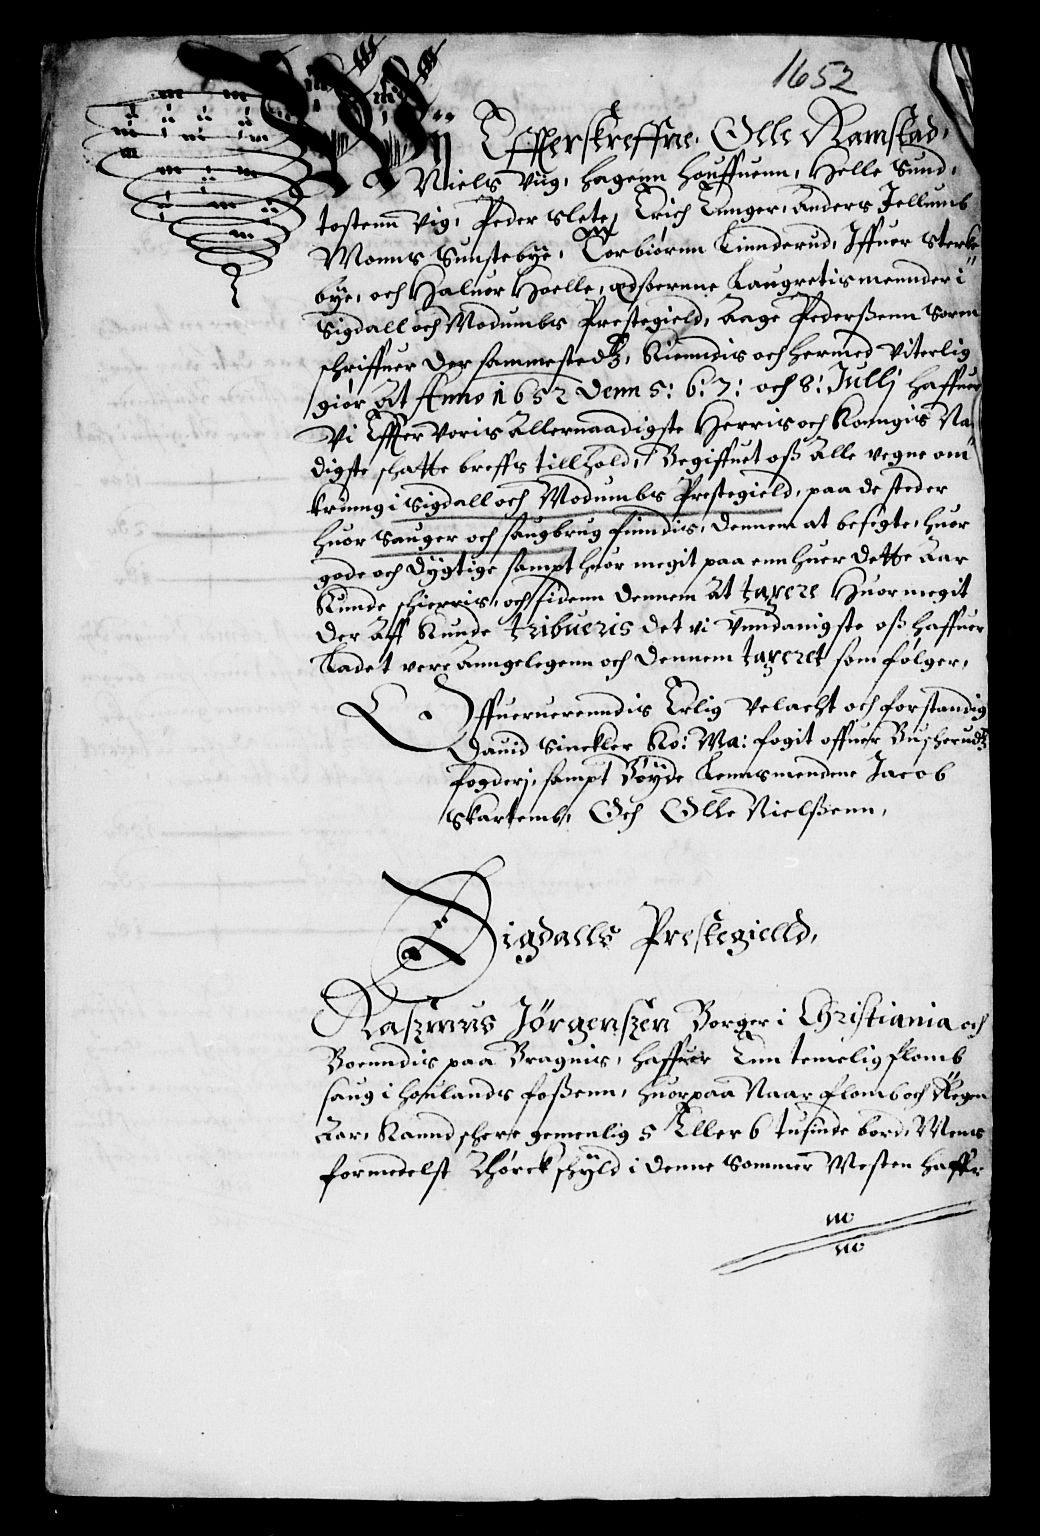 1652
Wij Effterskreffne, Olle Ramstad,
Niels Viig, Hagenn Houffuenn, Helle Sund,
tostenn Vig, Peder Slete, Erich Enger, Anders Jellumb
Monns Sunstebye, Torbiørnn Linnderud, Iffuer Sterke
bye, och Haluor Hoelle, edßornne Laugretismennder i
Sigdall och Modumbs Prestegield, Aage Pederßenn Sorrn
schriffuer der sammestedtz, Kienndis och hermed Viterlig
giør At Anno 1652 denn 5: 6: 7: och 8: Julij haffuer
Vi Effter Voris Allernaadigste Herris och Konngis Na
digste schatte breffs tillhold, Begiffuet oß Alle vegne om
kring i Sigdall och Modumbs Prestegield, paa de steder
huor Sauger och saugbrug finndis, dennem at besigte, huor
gode och dygtige sampt huor megit paa enn huer dette Aar
Kunde schierris, och sidenn dennem At taxere Huor megit
der Aff Kunde tribueris det vi Unndanigste oß haffuer
Ladet vere Anngelegenn och dennem taxeret som følger,
Offuerverenndis Erlig Velacht och forstandig
Dauid Sinckler Ko: Ma: fogit offuer Buscherudtz
fogderj, sampt Bøyde Lennsmendene Jacob
Skartemb, Och Olle Nielßenn,
Sigdalls Prestegielld,
Raßmus Jørgenßen Borger i Christiania och
Boenndis paa Bragnis, haffuer Enn temelig flomb
saug i Houlands foßenn, huorpaa Naar flomb och Regn
Aar, Kannd scherre gemenlig 5 Eller 6 tusinde bord, Mens
formedelst Thørck schyld i denne Sommer Mesten haffr